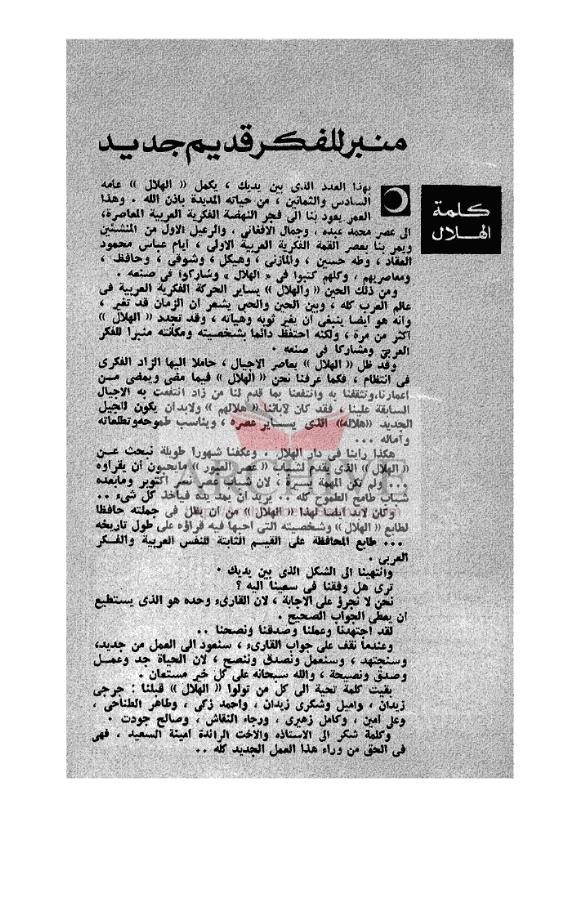 منبر للفكر قديم جديد
كلمة
الهلال
بهذا العدد الذى بين يديك ، يكمل (( الهلال )) عامه
السادس والثمانين ، من حياته المديدة باذن الله . وهذا
العمر يعود بنا الى فجر النهضة الفكرية العربية المعاصرة،
الى عصر محمد عبده ، وجمال الافغانى ، والرعيل الاول من المنشئين
ويمر بنا بعصر القمة الفكرية العربية الاولى ، ايام عباس محمود
العقاد ، وطه حسين ، والمازنى ، وهيكل ، وشوقى ، وحافظ ،
ومعاصريهم ، وكلهم كتبوا فى « الهلال » وشاركوا فى صنعه .
ومن ذلك الحين (( والهلال )) يساير الحركة الفكرية العربية فى
عالم العرب كله ، وبين الحين والحين يشعر ان الزمان قد تغير ،
وانه هو ايضا ينبغى ان يغير ثوبه وهيأته ، وقد تجدد (( الهلال ))
اكثر من مرة ، ولكنه احتفظ دائما بشخصيته ومكانته منبرا للفكر
العربى ومشاركا فى صنعه .
وقد ظل (( الهلال )) يعاصر الاجيال ، حاملا اليها الزاد الفكرى
فى انتظام ، فكما عرفنا نحن (( الهلال )) فيما مضى ويمضى من
اعمارنا،وتثقفنا به وانتفعنا بما قدم لنا من زاد انتفعت به الاجيال
السابقة علينا ، فقد كان لآبائنا (( هلالهم )) ولابد ان يكون للجيل
الجديد (( هلاله )) الذى يساير عصره ، ويناسب طموحه وتطلعاته
وآماله ...
هكذا راينا فى دار الهلال . وعكفنا شهورا طويلة نبحث عن
(( الهلال )) الذى يقدم لشباب (( عصر العبور )) مايحبون ان يقرأوه
... ولم تكن المهمة يسيرا ، لان شباب مصر نصر اكتوبر ومابعده
شباب طامح الطموح كله .. يريد ان يمد يده فيأخذ كل شىء ..
وكان لابد ايضا لهذا (( الهلال )) من ان يظل فى جملته حافظا
لطابع (( الهلال )) وشخصيته التى احبها فيه قراؤه على طول تاريخه
... طابع المحافظة على القيم الثابتة للنفس العربية والفكر
العربى .
وانتهينا الى الشكل الذى بين يديك .
ترى هل وفقنا فى سعينا اليه ؟
نحن لا نجرؤ على الاجابة ، لان القارىء وحده هو الذى يستطيع
ان يعطى الجواب الصحيح .
لقد اجتهدنا وعملنا وصدقنا ونصحنا ..
وعندما نقف على جواب القارىء ، سنعود الى العمل من جديد،
وسنجتهد ، وسنعمل ونصدق وننصح ، لان الحياة جد وعمل
وصدق ونصيحة ، والله سبحانه على كل خير مستعان .
بقيت كلمة تحية الى كل من تولوا (( الهلال )) قبلنا : جرجى
زيدان ، واميل وشكرى زيدان ، واحمد زكى ، وطاهر الطناحى ،
وعلى امين ، وكامل زهيرى ، ورجاء النقاش ، وصالح جودت .
وكلمة شكر الى الاستاذه والاخت الرائدة امينة السعيد ، فهى
فى الحق من وراء هذا العمل الجديد كله ..